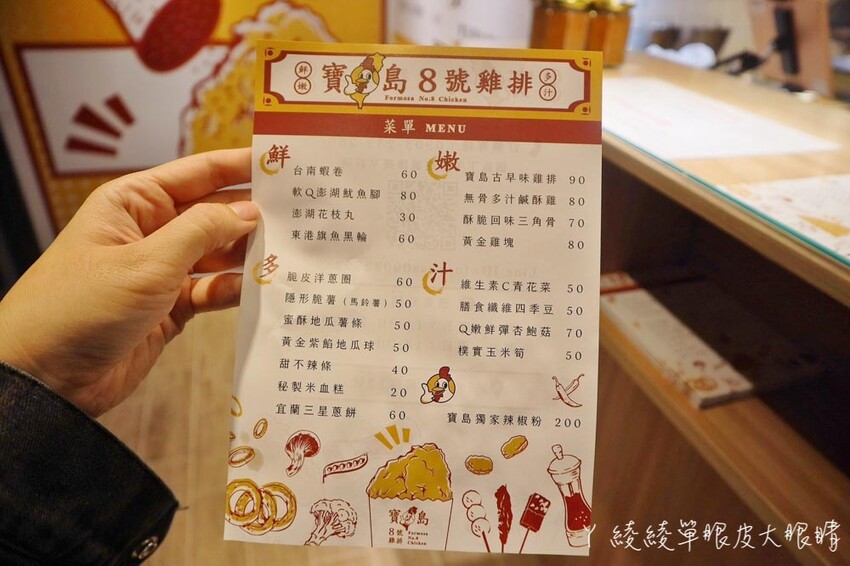 鮮嫩
寶島8號雞排
多汁
Formosa No.8 Chicken
菜單 MENU
鮮
台南蝦卷 60
軟Q澎湖魷魚腳 80
澎湖花枝丸 30
東港旗魚黑輪 60
嫩
寶島古早味雞排 90
無骨多汁鹹酥雞 80
酥脆回味三角骨 70
黃金雞塊 80
多
脆皮洋蔥圈 60
隱形脆薯（馬鈴薯）50
蜜酥地瓜薯條 50
黃金紫餡地瓜球 50
甜不辣條 40
秘製米血糕 20
宜蘭三星蔥餅 60
汁
維生素C青花菜 50
膳食纖維四季豆 50
Q嫩鮮彈杏鮑菇 70
樸實玉米筍 50
寶島獨家辣椒粉 200
寶島
8號雞排
Formosa No.8 Chicken
ㄚ綾綾單眼皮大眼睛